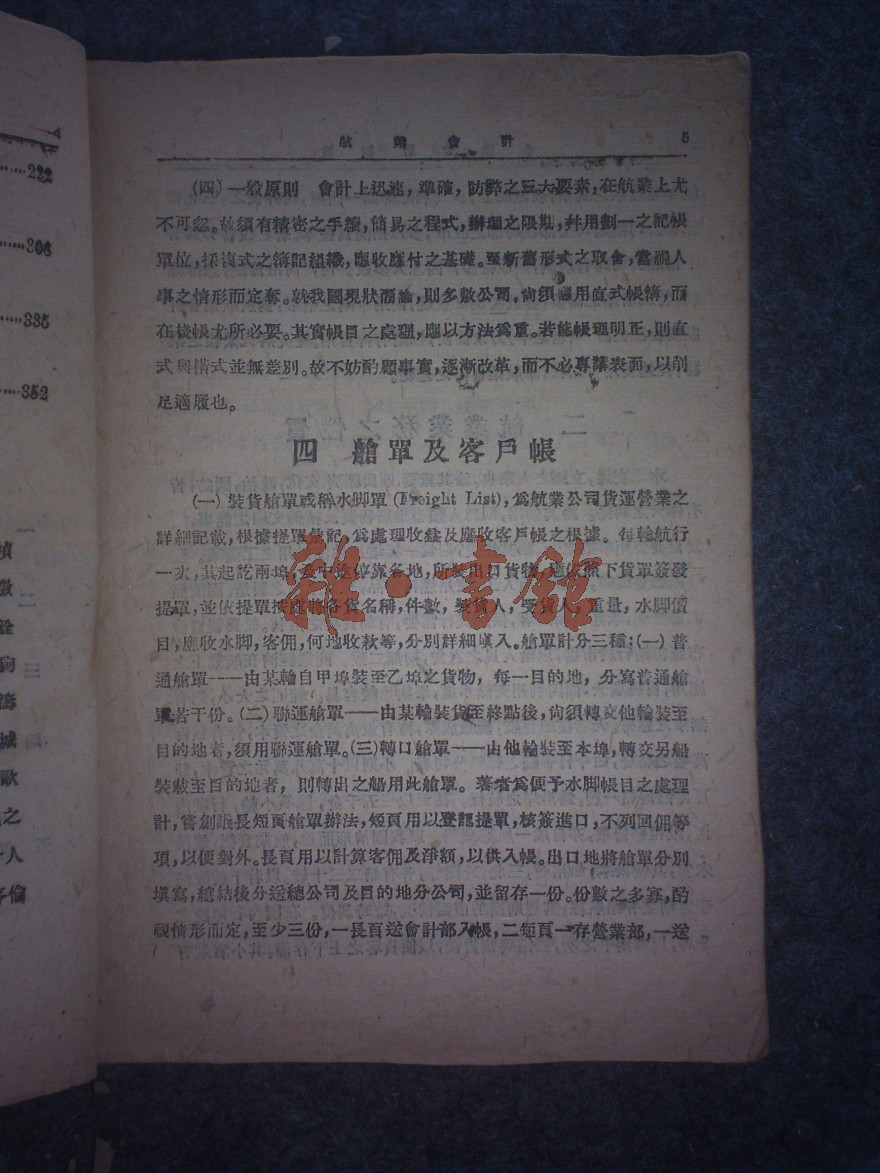 222
306
335
352
之
人
倫
航業會計 5
(四)一般原則 會計上迅速,準確,防弊之三大要素,在航業上尤
不可忽。故須有精密之手續,簡易之程式,辦理之限期,幷用劃一之記帳
單位,採複式之簿記組織,應收應付之基礎。至新舊形式之取舍,當視人
事之情形而定奪。就我國現狀而論,則多數公司,尙須應用直式帳簿,而
在棧帳尤所必要。其實帳目之處理,應以方法爲重。若能帳理明正,則直
式與橫式並無差別。故不妨酌顧事實,逐漸改革,而不必專講表面,以削
足適履也。
四 艙單及客戶帳
(一)裝貨艙單或稱水脚單(Freight List),爲航業公司貨運營業之
詳細記載,根據提單登記,爲處理收益及應收客戶帳之根據。每輪航行
一次,其起訖兩埠,及中途停靠各地,所裝出口貨物,應依照下貨單簽發
提單,並依提單按應將各貨名稱,件數,裝貨人,受貨人,重量,水脚價
目,應收水脚,客佣,何地收款等,分別詳細塡入。艙單計分三種:(一)普
通艙單——由某輪自甲埠裝至乙埠之貨物,每一目的地,分寫普通艙
單若干份。(二)聯運艙單——由某輪裝貨至終點後,尙須轉交他輪裝至
目的地者,須用聯運艙單。(三)轉口艙單——由他輪裝至本埠,轉交另船
裝載至目的地者,則轉出之船用此艙單。著者爲便予水脚帳目之處理
計,嘗創設長短頁艙單辦法,短頁用以登記提單,核簽進口,不列回佣等
項,以便對外。長頁用以計算客佣及淨額,以供入帳。出口地將艙單分別
塡寫,總結後分送總公司及目的地分公司,並留存一份。份數之多寡,酌
視情形而定,至少三份,一長頁送會計部入帳,二短頁一存營業部,一送
雜·書館